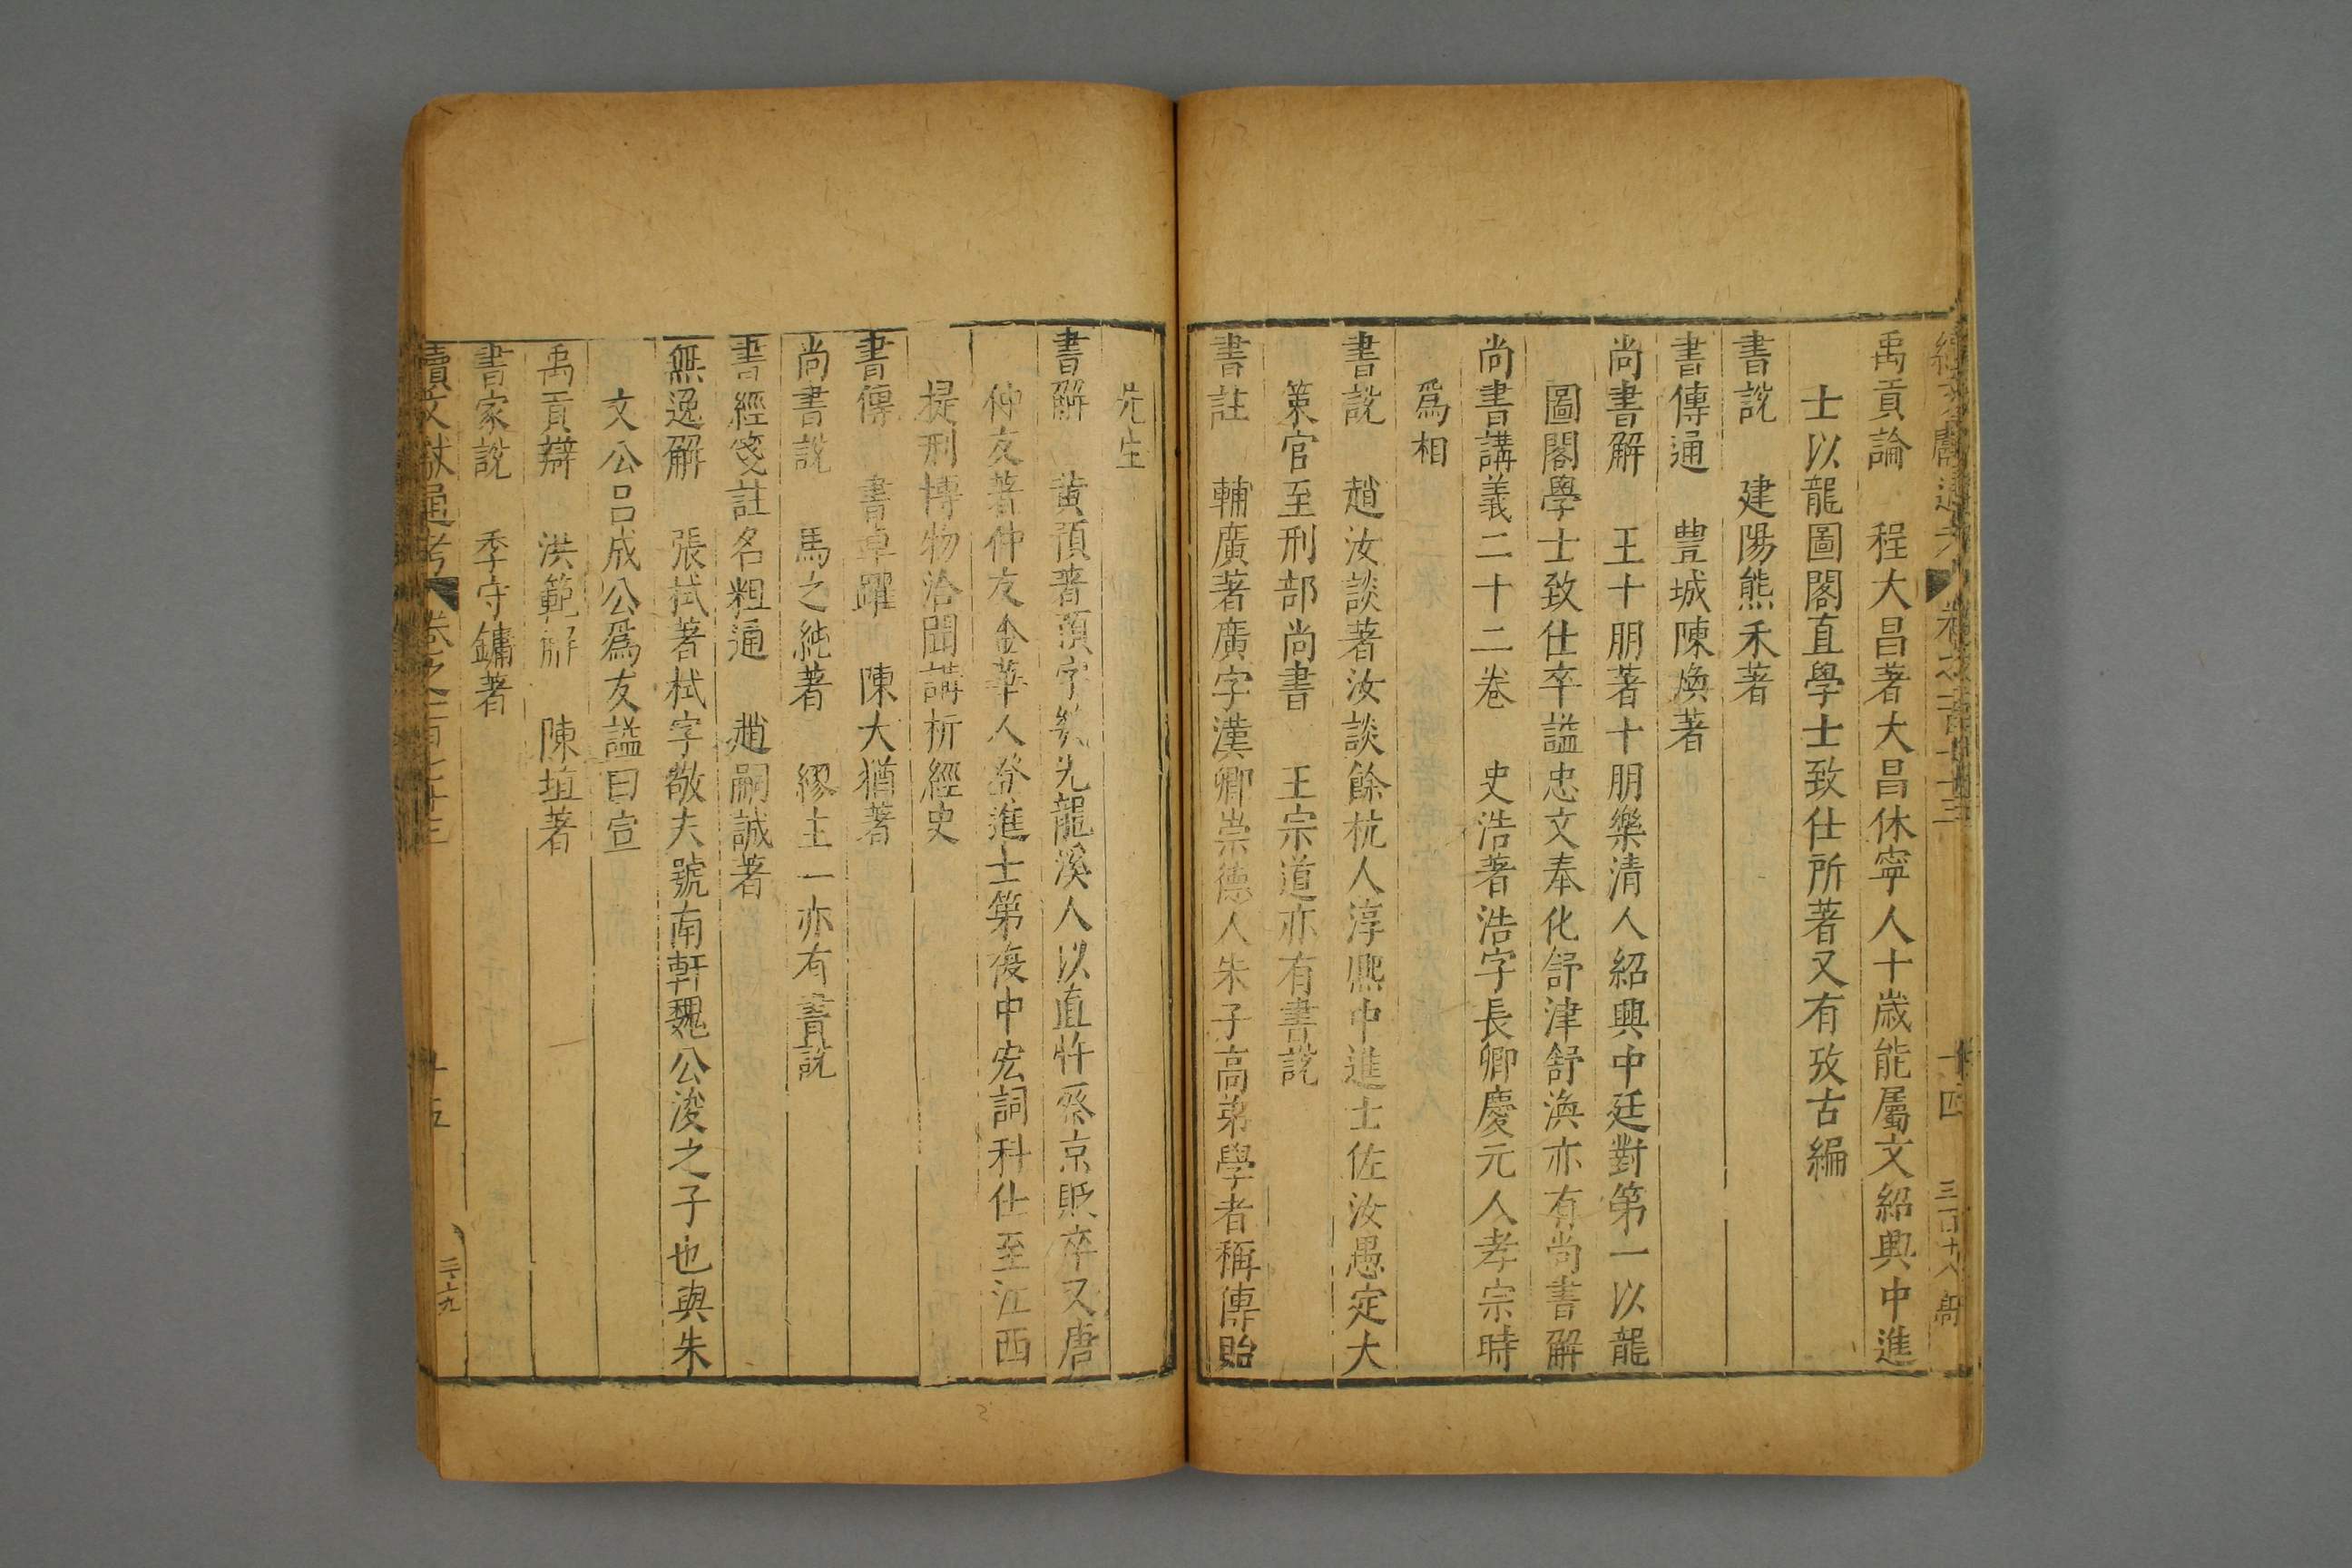 續文獻通考 卷之一百七十三 十四
禹貢論 程大昌著大昌休寧人十歲能屬文紹興中進
士以龍圖閣直學士致仕所著又有攷古編
書說 建陽熊禾著
書傳通 豊城陳煥著
尚書解 王十朋著十朋樂清人紹興中廷對第一以龍
圖閣學士致仕卒謚忠文奉化舒津舒渙亦有尚書解
尚書講義二十二卷 史浩著浩字長卿慶元人孝宗時
爲相
書說 趙汝談著汝談餘杭人淳熈中進士佐汝愚定大
策官至刑部尚書 王宗道亦有書說
書註 輔廣著廣字漢卿崇德人朱子高弟學者稱傳貽
先生
書解 黃預著預字幾先龍溪人以直忤蔡京貶卒又唐
仲友著仲友金華人登進士第復中宏詞科仕至江西
提刑博物洽聞講析經史
書傳 書卓躍 陳大猶著
尚書說 馬之純著 繆主一亦有書說
書經箋註名粗通 趙嗣誠著
無逸解 張栻著栻字敬夫號南軒魏公浚之子也與朱
文公呂成公爲友謚曰宣
禹貢辯 洪範解 陳埴著
書家說 季守鏞著
續文獻通考 卷之一百七十三 十五